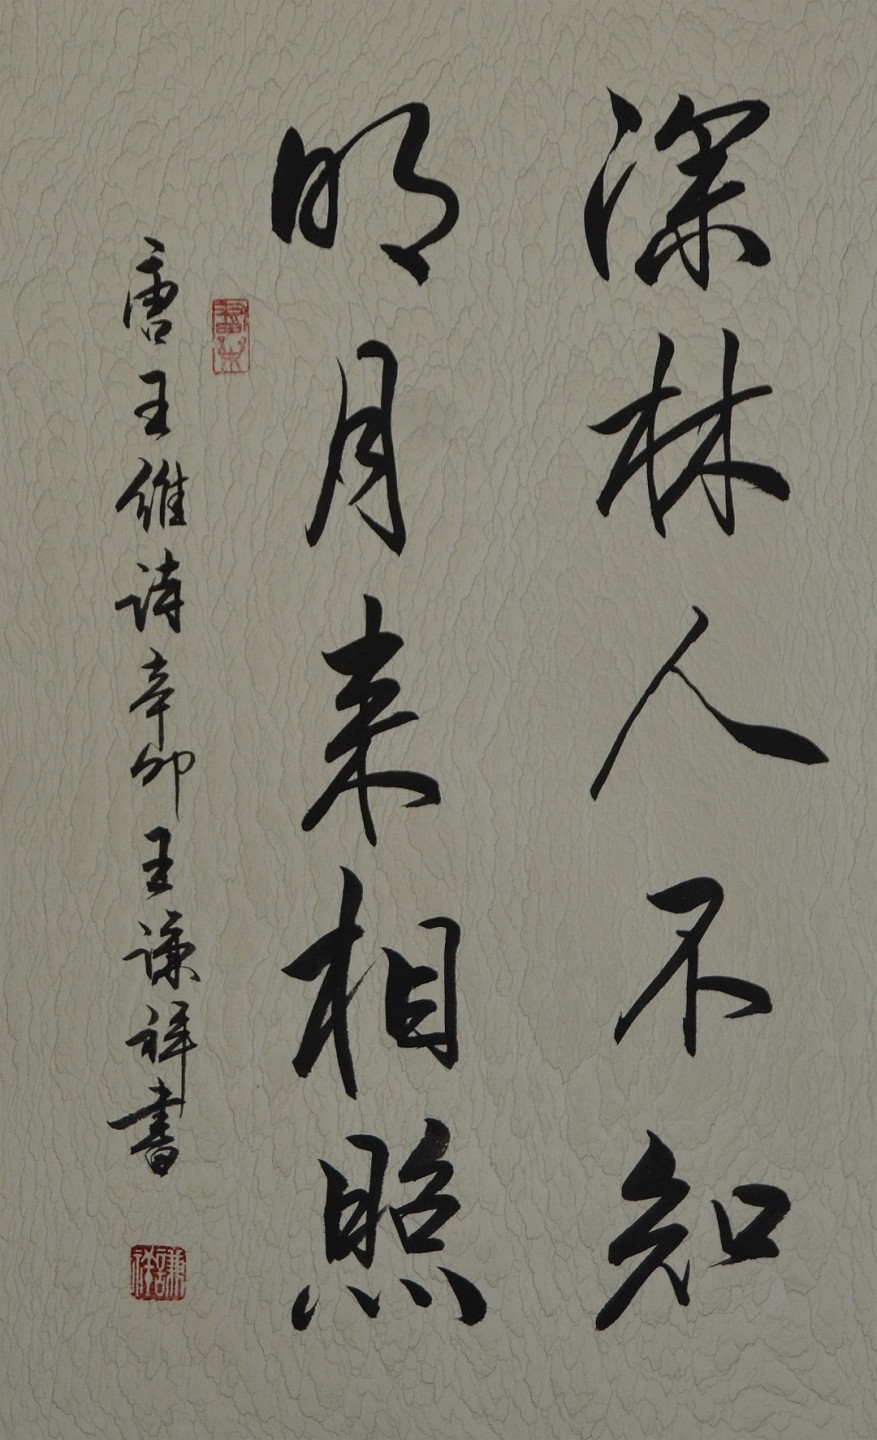 深林人不知
明月来相照
唐王维诗辛卯王谦祥书
謙祥